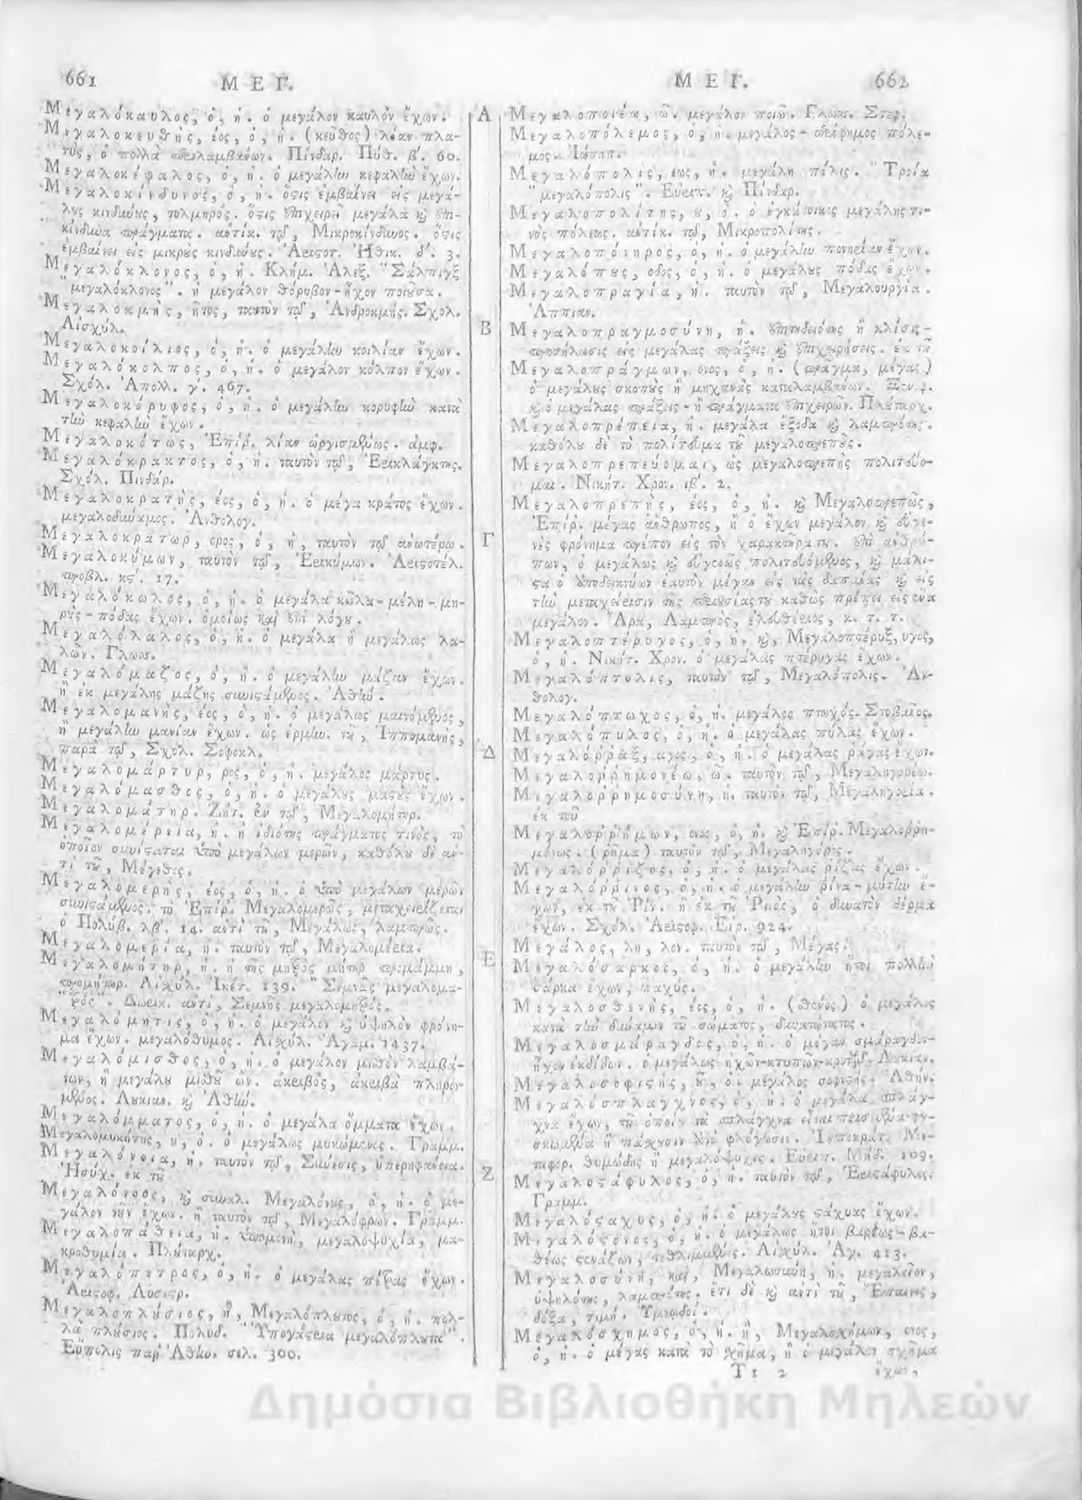 661 ΜΕΓ.
Μεγαλόκαυλος, ὁ, ἡ. ὁ μεγάλον καυλὸν ἔχων.
Μεγαλοκευθὴς, έος, ὁ, ἡ. (κεῦθος) λίαν πλα-
τὺς, ὁ πολλὰ περιλαμβάνων. Πίνδαρ. Πύθ. β'. 60.
Μεγαλοκέφαλος, ὁ, ἡ. ὁ μεγάλην κεφαλὴν ἔχων.
Μεγαλοκίνδυνος, ὁ, ἡ. ὅστις ἐμβαίνει εἰς μεγά-
λους κινδύνους, τολμηρός. ὅστις ἐπιχειρεῖ μεγάλα καὶ ἐπι-
κίνδυνα πράγματα. ἀντίκ. τῷ, Μικροκίνδυνος. ὅστις
ἐμβαίνει εἰς μικροὺς κινδύνους. Ἀριστοτ. Ἠθικ. δ'. 3.
Μεγαλόκλονος, ὁ, ἡ. Κλήμ. Ἀλεξ. "Σάλπιγξ
"μεγαλόκλονος". ἡ μεγάλον θόρυβον-ἦχον ποιοῦσα.
Μεγαλοκμὴς, ῆτος, ταυτὸν τῷ, Ἀνδροκμής. Σχολ.
Αἰσχύλ.
Μεγαλοκοίλιος, ὁ, ἡ. ὁ μεγάλην κοιλίαν ἔχων.
Μεγαλόκολπος, ὁ, ἡ. ὁ μεγάλον κόλπον ἔχων.
Σχόλ. Ἀπολλ. γ'. 467.
Μεγαλοκόρυφος, ὁ, ἡ. ὁ μεγάλην κορυφὴν κατὰ
τὴν κεφαλὴν ἔχων.
Μεγαλοκότως, Ἐπίρ. λίαν ὠργισμένως. ἀμφ.
Μεγαλόκρακτος, ὁ, ἡ. ταυτὸν τῷ, Ἐρικλάγκτης.
Σχόλ. Πινδάρ.
Μεγαλοκρατὴς, έος, ὁ, ἡ. ὁ μέγα κράτος ἔχων.
μεγαλοδύναμος. Ἀνθολογ.
Μεγαλοκράτωρ, ορος, ὁ, ἡ, ταυτὸν τῷ ἀνωτέρω.
Μεγαλοκύμων, ταυτὸν τῷ, Ἐρικύμων. Ἀριστοτέλ.
προβλ. κϛ'. 17.
Μεγαλόκωλος, ὁ, ἡ. ὁ μεγάλα κῶλα-μέλη-μη-
ροὺς-πόδας ἔχων. ὁμοίως καὶ ἐπὶ λόγου.
Μεγαλόλαλος, ὁ, ἡ. ὁ μεγάλα ἢ μεγάλως λα-
λῶν. Γλωσσ.
Μεγαλόμαζος, ὁ, ἡ. ὁ μεγάλην μᾶζαν ἔχων.
ἢ ἐκ μεγάλης μάζης συνιστάμενος. Ἀθήν.
Μεγαλομανὴς, έος, ὁ, ἡ. ὁ μεγάλως μαινόμενος,
ἢ μεγάλην μανίαν ἔχων. ὡς ἑρμην. τοῦ, Ἱππομανὴς,
παρὰ τῷ, Σχολ. Σοφοκλ.
Μεγαλομάρτυρ, ρος, ὁ, ἡ. μεγάλος μάρτυς.
Μεγαλόμασθος, ὁ, ἡ. ὁ μεγάλους μαστοὺς ἔχων.
Μεγαλομάτηρ. Ζήτ. ἐν τῷ, Μεγαλομήτηρ.
Μεγαλομέρεια, ἡ. ἡ ἰδιότης πράγματος τινὸς, τὸ
ὁποῖον συνίσταται ὑπὸ μεγάλων μερῶν, καθόλου δὲ ἀν-
τὶ τοῦ, Μέγεθος.
Μεγαλομερὴς, έος, ὁ, ἡ. ὁ ὑπὸ μεγάλων μερῶν
συνιστάμενος. τὸ Ἐπίρ. Μεγαλομερῶς, μεταχειρίζεται
ὁ Πολύβ. λβ'. 14. ἀντὶ τοῦ, Μεγάλως, λαμπρῶς.
Μεγαλομερία, ἡ. ταυτὸν τῷ, Μεγαλομέρεια.
Μεγαλομήτηρ, ἡ. ἡ τῆς μητρὸς μήτηρ προμάμμη,
προμήτωρ. Αἰσχύλ. Ἱκέτ. 139. "Σεμνᾶς μεγαλομα-
"τρός". Δωρικ. ἀντὶ, Σεμνῆς μεγαλομητρός.
Μεγαλόμητις, ὁ, ἡ. ὁ μεγάλον καὶ ὑψηλὸν φρόνη-
μα ἔχων. μεγαλόθυμος. Αἰσχύλ. Ἀγαμ. 1437.
Μεγαλόμισθος, ὁ, ἡ. ὁ μεγάλον μισθὸν λαμβά-
νων, ἢ μεγάλου μισθοῦ ὤν. ἀκριβὸς, ἀκριβὰ πληρω-
μένος. Λουκιαν. καὶ Ἀθήν.
Μεγαλόμματος, ὁ, ἡ. ὁ μεγάλα ὄμματα ἔχων.
Μεγαλομυκήτης, ου, ὁ. ὁ μεγάλως μυκώμενος. Γραμμ.
Μεγαλόνοια, ἡ. ταυτὸν τῷ, Σύνεσις, ὑπερηφάνεια.
Ἡσύχ. ἐκ τοῦ
Μεγαλόνοος, καὶ συναλ. Μεγαλόνους, ὁ, ἡ. ὁ με-
γάλον νοῦν ἔχων. ἢ ταυτὸν τῷ, Μεγαλόφρων. Γραμμ.
Μεγαλοπάθεια, ἡ. ὑπομονὴ, μεγαλοψυχία, μα-
κροθυμία. Πλούταρχ.
Μεγαλόπετρος, ὁ, ἡ. ὁ μεγάλας πέτρας ἔχων.
Ἀριστοφ. Λυσιστρ.
Μεγαλοπλούσιος, ἢ, Μεγαλόπλουτος, ὁ, ἡ. πολ-
λὰ πλούσιος. Πολυδ. "Ὑπογάστρια μεγαλόπλουτα".
Εὔπολις παρ' Ἀθήν. σελ. 300.
Α
Β
Γ
Δ
Ε
Ζ
ΜΕΓ. 662
Μεγαλοποιέω, ῶ. μεγάλον ποιῶ. Γλωσσ. Στεφ.
Μεγαλοπόλεμος, ὁ, ἡ. μεγάλος-περίφημος πόλε-
μος. Ἰώσηπ.
Μεγαλόπολις, εως, ἡ. μεγάλη πόλις. "Τροία
"μεγαλόπολις". Εὐριπ. καὶ Πίνδαρ.
Μεγαλοπολίτης, ου, ὁ. ὁ ἐγκάτοικος μεγάλης τι-
νὸς πόλεως. ἀντίκ. τῷ, Μικροπολίτης.
Μεγαλοπόνηρος, ὁ, ἡ. ὁ μεγάλην πονηρίαν ἔχων.
Μεγαλόπους, οδος, ὁ, ἡ. ὁ μεγάλους πόδας ἔχων.
Μεγαλοπραγία, ἡ. ταυτὸν τῷ, Μεγαλουργία.
Ἀππιαν.
Μεγαλοπραγμοσύνη, ἡ. ἐπιτηδειότης ἢ κλίσις-
προσήλωσις εἰς μεγάλας πράξεις καὶ ἐπιχειρήσεις. ἐκ τοῦ
Μεγαλοπράγμων, ονος, ὁ, ἡ. (πρᾶγμα, μέγας)
ὁ μεγάλους σκοποὺς ἢ μηχανὰς καταλαμβάνων. Ξενοφ.
καὶ ὁ μεγάλας πράξεις-ἢ πράγματα ἐπιχειρῶν. Πλούταρχ.
Μεγαλοπρέπεια, ἡ. μεγάλα ἔξοδα καὶ λαμπρότης.
καθόλου δὲ τὸ πολίτευμα τοῦ μεγαλοπρεποῦς.
Μεγαλοπρεπεύομαι, ὡς μεγαλοπρεπὴς πολιτεύο-
μαι. Νικήτ. Χρον. ιβ'. 2.
Μεγαλοπρεπὴς, έος, ὁ, ἡ. καὶ Μεγαλοπρεπῶς,
Ἐπίρ. μέγας ἄνθρωπος, ἢ ὁ ἔχων μεγάλον καὶ εὐγε-
νὲς φρόνημα πρέπον εἰς τὸν χαρακτῆρά του. ἐπὶ ἀνθρώ-
πων, ὁ μεγάλως καὶ εὐγενῶς πολιτευόμενος, καὶ μάλι-
στα ὁ ὑποδεικνύων ἑαυτὸν μέγαν εἰς τὰς δαπάνας καὶ εἰς
τὴν μεταχείρισιν τῆς περιουσίας του καθὼς πρέπει εἰς ἕνα
μεγάλον. Ἄρα, Λαμπρὸς, ἐλευθέριος, κ. τ. τ.
Μεγαλοπτέρυγος, ὁ, ἡ. καὶ, Μεγαλοπτέρυξ, υγος,
ὁ, ἡ. Νικήτ. Χρον. ὁ μεγάλας πτέρυγας ἔχων.
Μεγαλόπτολις, ταυτὸν τῷ, Μεγαλόπολις. Ἀν-
θολογ.
Μεγαλόπτωχος, ὁ, ἡ. μεγάλος πτωχός. Στοβαῖος.
Μεγαλόπυλος, ὁ, ἡ. ὁ μεγάλας πύλας ἔχων.
Μεγαλόρραξ, αγος, ὁ, ἡ. ὁ μεγάλας ράγας ἔχων.
Μεγαλορρημονέω, ῶ. ταυτὸν τῷ, Μεγαληγορέω.
Μεγαλορρημοσύνη, ἡ. ταυτὸν τῷ, Μεγαληγορία.
ἐκ τοῦ
Μεγαλορρήμων, ονος, ὁ, ἡ. καὶ Ἐπίρ. Μεγαλορρη-
μόνως. (ρῆμα) ταυτὸν τῷ, Μεγαλήγορος.
Μεγαλόρριζος, ὁ, ἡ. ὁ μεγάλας ρίζας ἔχων.
Μεγαλόρρινος, ὁ, ἡ. ὁ μεγάλην ρίνα-μύτην ἔ-
χων, ἐκ τοῦ Ρίν. ἢ ἐκ τοῦ Ρινὸς, ὁ δυνατὸν δέρμα
ἔχων. Σχόλ. Ἀριστοφ. Εἰρ. 924.
Μεγάλος, λη, λον. ταυτὸν τῷ, Μέγας.
Μεγαλόσαρκος, ὁ, ἡ. ὁ μεγάλην ἤτοι πολλὴν
σάρκα ἔχων, παχύς.
Μεγαλοσθενὴς, έος, ὁ, ἡ. (σθένος) ὁ μεγάλος
κατὰ τὴν δύναμιν τοῦ σώματος, δυνατώτατος.
Μεγαλοσμάραγδος, ὁ, ἡ. ὁ μέγαν σμάραγδον-
ἦχον ἐκδίδων. ὁ μεγάλως ἠχῶν-κτυπῶν-κροτῶν. Λουκιαν.
Μεγαλοσοφιστὴς, οῦ, ὁ. μεγάλος σοφιστής. Ἀθήν.
Μεγαλόσπλαγχνος, ὁ, ἡ. ὁ μεγάλα σπλάγ-
χνα ἔχων, τοῦ ὁποίου τὰ σπλάγχνα εἶναι
ἢ πάσχουσιν ὑπὸ φλόγωσιν. Ἱπποκρατ. Με-
ταφορ. θυμώδης ἢ μεγαλόψυχος. Εὐριπ. Μήδ. 109.
Μεγαλοστάφυλος, ὁ, ἡ. ταυτὸν τῷ, Ἐριστάφυλος.
Γραμμ.
Μεγαλόσταχυς, ὁ, ἡ. ὁ μεγάλους στάχυας ἔχων.
Μεγαλόστονος, ὁ, ἡ. ὁ μεγάλως ἤτοι βαρέως-βα-
θέως στενάζων, τεθλιμμένος. Αἰσχύλ. Ἀγ. 413.
Μεγαλοσύνη, καὶ, Μεγαλωσύνη, ἡ. μεγαλεῖον,
ὑψηλότης, λαμπρότης. ἔτι δὲ καὶ ἀντὶ τοῦ, Ἔπαινος,
δόξα, τιμή. Ὑμνῳδοί.
Μεγαλόσχημος, ὁ, ἡ. ἢ, Μεγαλοσχήμων, ονος,
ὁ, ἡ. ὁ μέγας κατὰ τὸ σχῆμα, ἢ ὁ μεγάλον σχῆμα
Ττ 2 ἔχων,
Δημόσια Βιβλιοθήκη Μηλεών